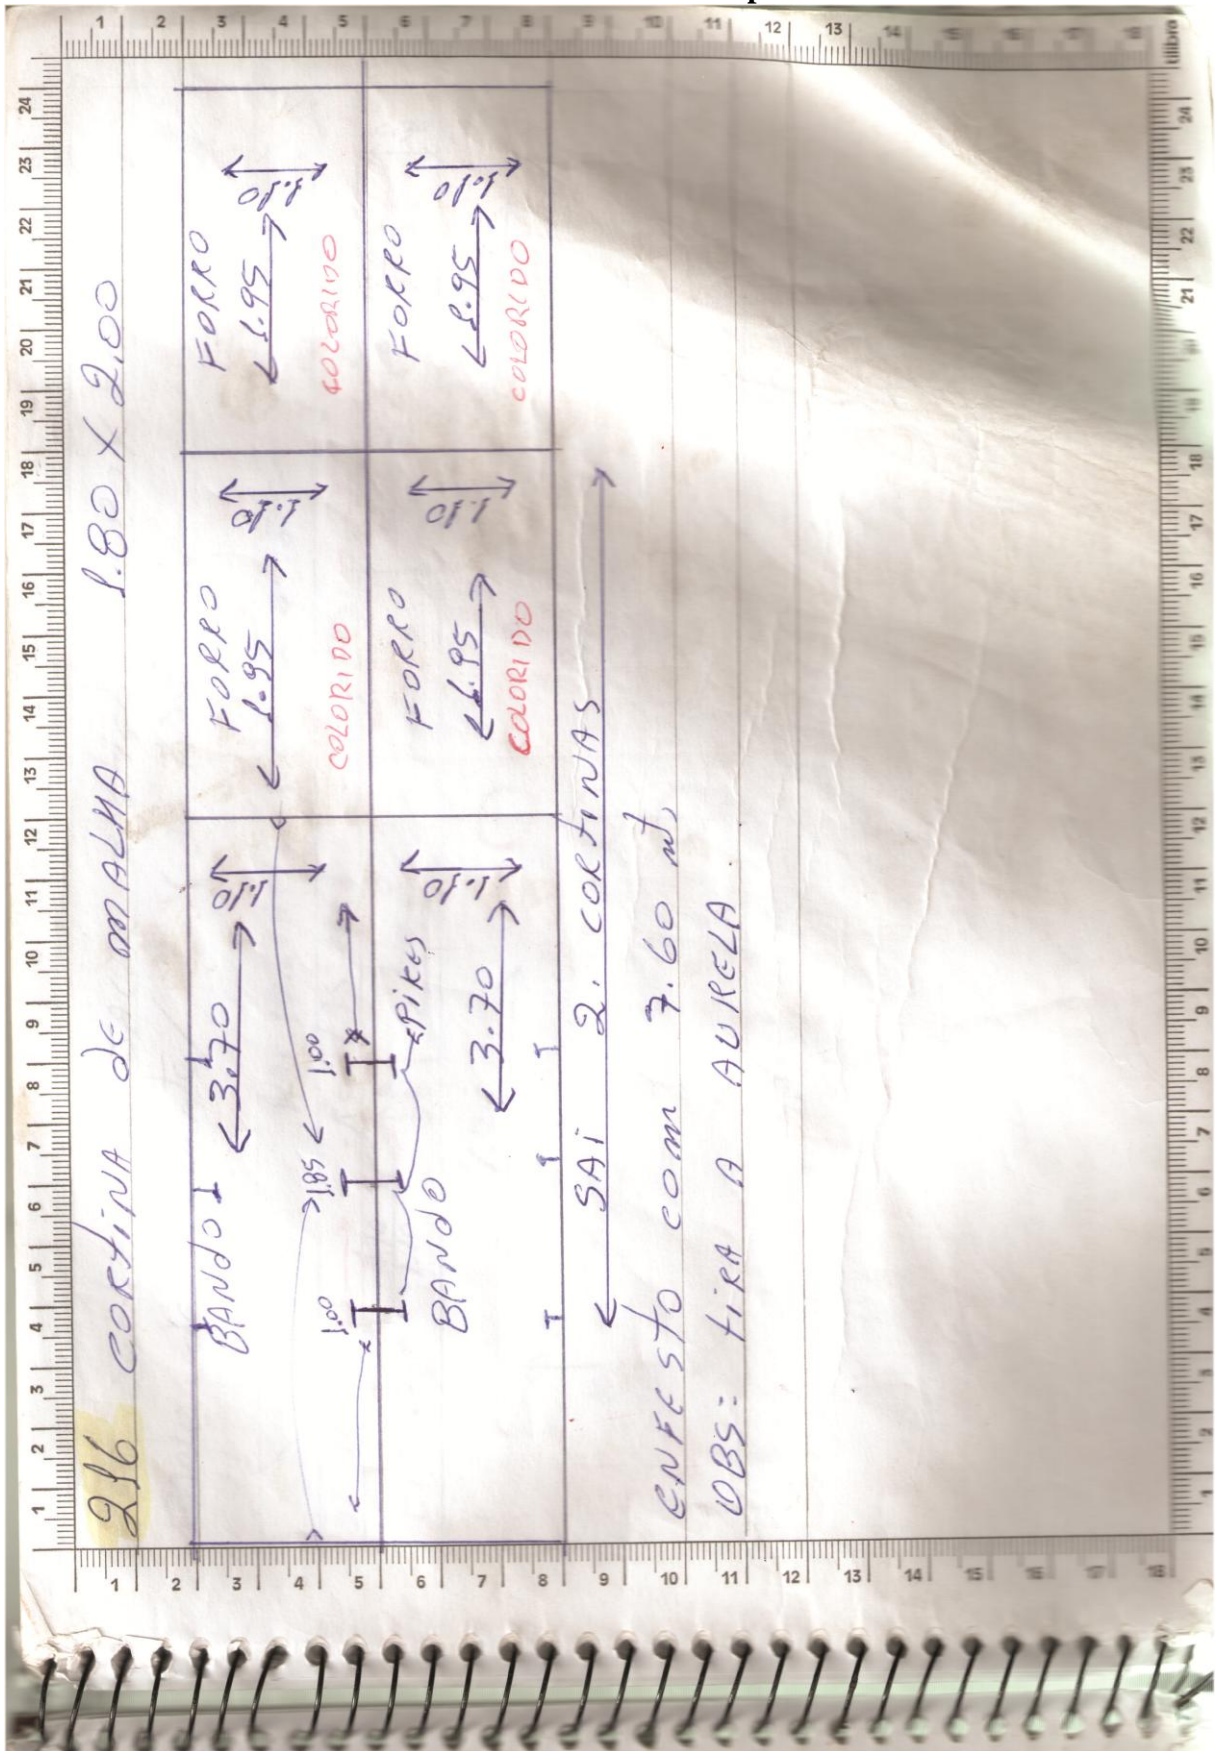 216 CORTINA de MALHA 1.80 X 2.00
BANDO
3.70
1.10
FORRO
1.95
1.10
COLORIDO
FORRO
1.95
1.10
COLORIDO
1.00
1.85
1.00
PIKES
BANDO
3.70
1.10
FORRO
1.95
1.10
COLORIDO
FORRO
1.95
1.10
COLORIDO
SAI 2. CORTINAS
ENFESTO COM 7.60 mt,
OBS: TIRA A AURELA